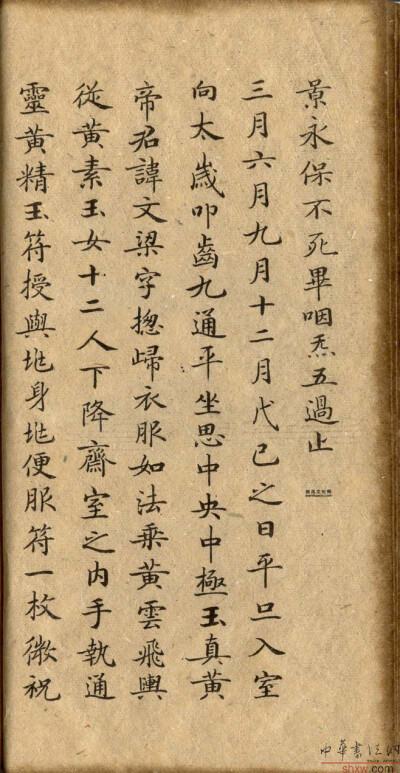 景永保不死畢咽炁五過止
三月六月九月十二月戊己之日平旦入室
向太歲叩齒九通平坐思中央中極玉真黃
帝君諱文梁字揔歸衣服如法乘黃雲飛輿
從黃素玉女十二人下降齋室之內手執通
靈黃精玉符授與兆身兆便服符一枚微祝
中華書法網
shxw.com